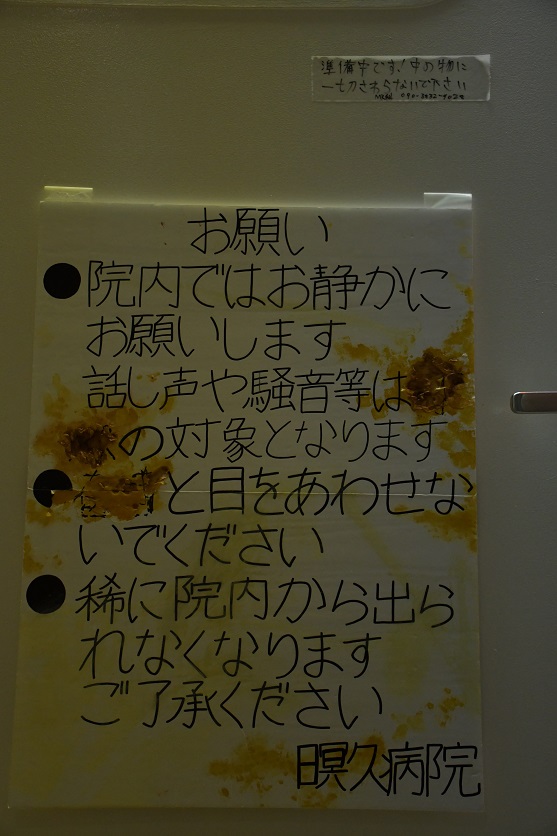 準備中です!中の物に
一切さわらないで下さい
お願い
●院内ではお静かに
お願いします
話し声や騒音等は
の対象となります
●と目をあわせな
いでください
●稀に院内から出ら
れなくなります
ご了承ください
瞑久病院